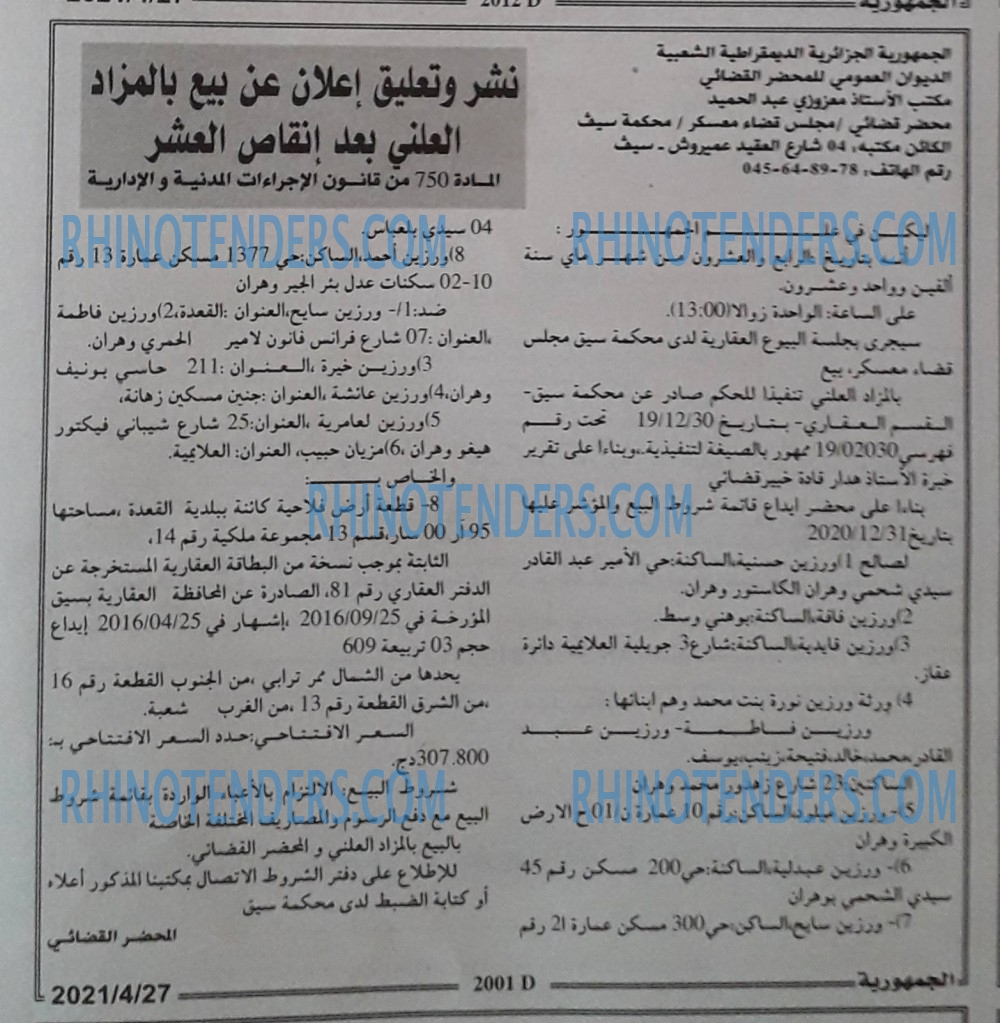 2021/4/27
2012 D
الجمهورية
الجمهورية الجزائرية الديمقراطية الشعبية
الديوان العمومي للمحضر القضائي
مكتب الأستاذ معزوزي عبد الحميد
محضر قضائي /مجلس قضاء معسكر / محكمة سيق
الكائن مكتبه: 04 شارع العقيد عميروش ـ سيق
رقم الهاتف: 78-89-64-045
نشر وتعليق إعلان عن بيع بالمزاد
العلني بعد إنقاص العشر
المادة 750 من قانون الإجراءات المدنية و الإدارية
ليكن في علم الجمهور :
أنه بتاريخ :الرابع والعشرون من شهر ماي سنة
ألفين وواحد وعشرون.
على الساعة: الواحدة زوالا(13:00).
سيجرى بجلسة البيوع العقارية لدى محكمة سيق مجلس
قضاء معسكر، بيع
بالمزاد العلني تنفيذا للحكم صادر عن محكمة سيق-
القسم العقاري- بتاريخ 19/12/30 تحت رقم
فهرسي19/02030 ممهور بالصيغة لتنفيذية.،وبناءا على تقرير
خبرة الأستاذ هدار قادة خبيرقضائي
بناءا على محضر ايداع قائمة شروط البيع والمؤشر عليها
بتاريخ2020/12/31
لصالح 1)ورزين حسنية،الساكنة:حي الأمير عبد القادر
سيدي شحمي وهران الكاستور وهران.
2)ورزين فاقة،الساكنة:بوهني وسط.
3)ورزين قايدية،الساكنة:شارع3 جويلية العلايمية دائرة
عقاز.
4) ورثة ورزين نورة بنت محمد وهم ابنائها :
ورزين فاطمة- ورزين عبد
القادر،محمد،خالد،فتيحة،زينب،يوسف.
الساكنين:23 شارع زهدور محمد وهران
5)- ورزين ميلود،الساكن:رقم10 عمارة ن 01ح الارض
الكبيرة وهران
6)- ورزين عبدلية،الساكنة:حي200 مسكن رقم 45
سيدي الشحمي بوهران
7)- ورزين سايح،الساكن:حي300 مسكن عمارة 2ا رقم
04 سيدي بلعباس.
8)ورزين أحمد،الساكن:حي 1377 مسكن عمارة 13 رقم
10-02 سكنات عدل بئر الجير وهران
ضد:1/- ورزين سايح،العنوان :القعدة،2)ورزين فاطمة
،العنوان :07 شارع فرانس فانون لامير الحمري وهران.
3)ورزين خيرة ،العنوان :211 حاسي بونيف
وهران،4)ورزين عائشة ،العنوان :جنين مسكين زهانة،
5)ورزين لعامرية ،العنوان:25 شارع شيباني فيكتور
هيغو وهران ،6)مزيان حبيب، العنوان: العلايمية.
والخاص بـ:
8- قطعة أرض فلاحية كائنة ببلدية القعدة ،مساحتها
95 آر 00 سار،قسم 13 مجموعة ملكية رقم 14،
الثابتة بموجب نسخة من البطاقة العقارية المستخرجة عن
الدفتر العقاري رقم 81، الصادرة عن المحافظة العقارية بسيق
المؤرخة في 2016/09/25 ،إشهار في 2016/04/25 إيداع
حجم 03 تربيعة 609
يحدها من الشمال ممر ترابي ،من الجنوب القطعة رقم 16
،من الشرق القطعة رقم 13 ،من الغرب شعبة.
السعر الافتتاحي:حدد السعر الافتتاحي بـ:
307.800دج.
شروط البيع: الالتزام بالأعباء الواردة بقائمة شروط
البيع مع دفع الرسوم والمصاريف المختلفة الخاصة
بالبيع بالمزاد العلني و المحضر القضائي.
للإطلاع على دفتر الشروط الاتصال بمكتبنا المذكور أعلاه
أو كتابة الضبط لدى محكمة سيق
المحضر القضائي
الجمهورية
2001 D
2021/4/27
RHINOTENDERS.COM
RHINOTENDERS.COM
RHINOTENDERS.COM
RHINOTENDERS.COM
RHINOTENDERS.COM